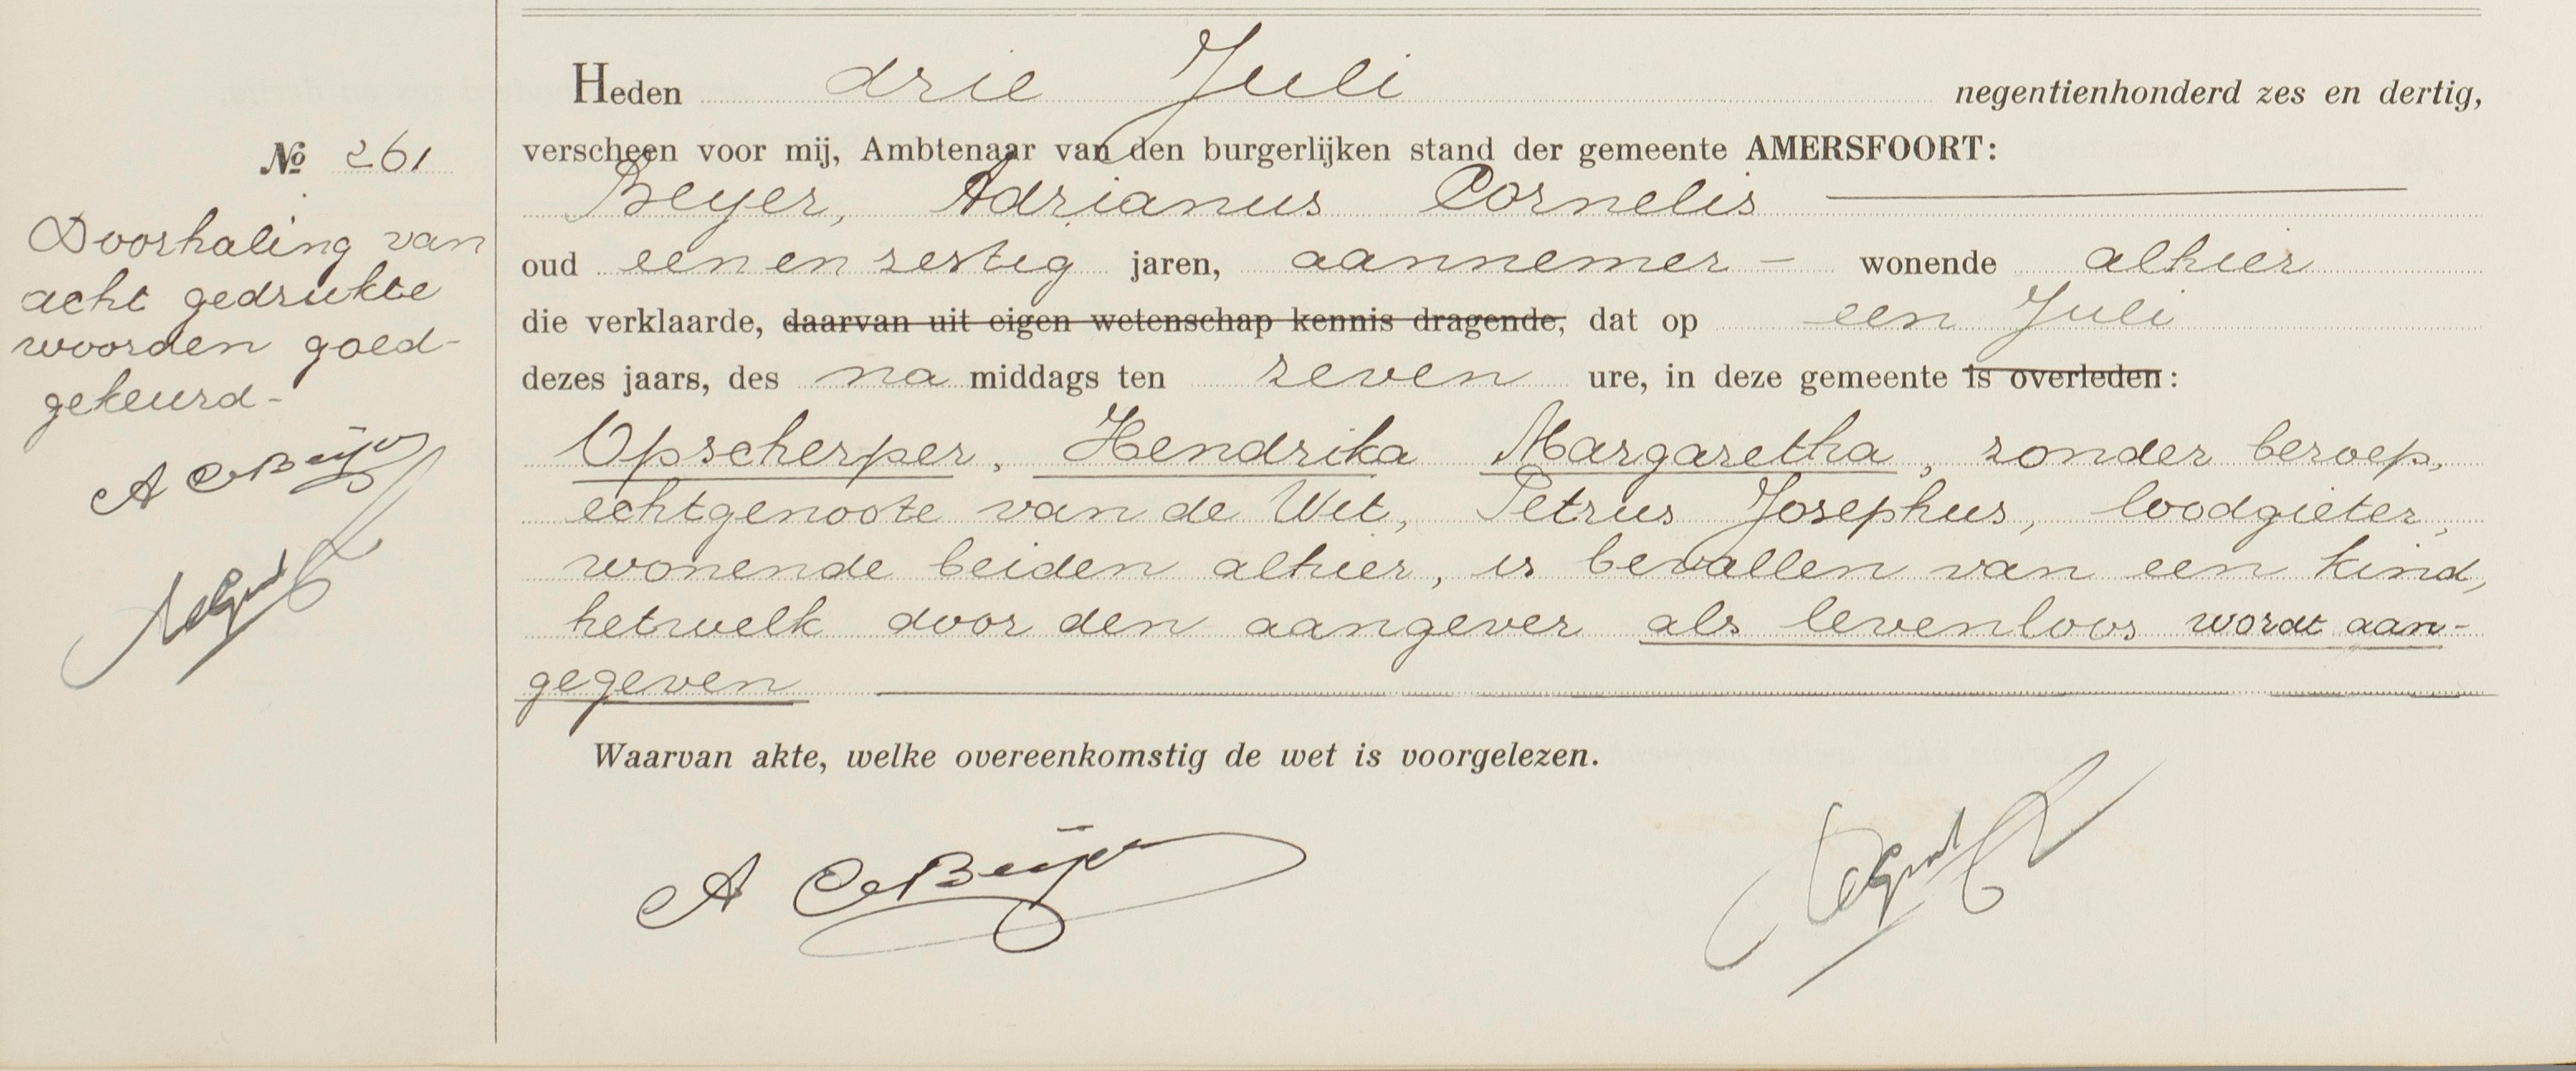 Heden drie Juli negentienhonderd zes en dertig,
verscheen voor mij, Ambtenaar van den burgerlijken stand der gemeente AMERSFOORT:
Beyer, Adrianus Cornelis
oud een en zestig jaren, aannemer - wonende alhier
die verklaarde, daarvan uit eigen wetenschap kennis dragende, dat op een Juli
dezes jaars, des na middags ten zeven ure, in deze gemeente is overleden:
Opscherper, Hendrika Margaretha, zonder beroep,
echtgenoote van de Wit, Petrus Josephus, loodgieter,
wonende beiden alhier, is bevallen van een kind,
hetwelk door den aangever als levenloos wordt aan-
gegeven
Waarvan akte, welke overeenkomstig de wet is voorgelezen.
A C Beijer
№ 261
Doorhaling van
acht gedrukte
woorden goed-
gekeurd-
A C Beijer